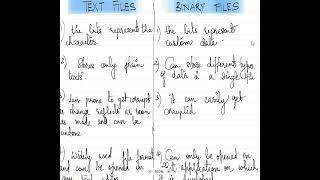 TEXT FILES
BINARY FILES
1) the bits represent the
character.
1) the bits represent
custom data
2) Stores only plain
texts
2) Can store different types
of data in a single file
3) less prone to get corrupt
as change reflects as soon
as made and can be
undone
3) it can easily get
corrupted
4) Widely used file format
and can be opened in
any
4) Can only be opened in
application